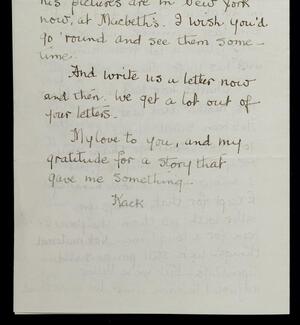 his pictures are in New York
now, at Macbeth's. I wish you'd
go 'round and see them some-
time.
And write us a letter now
and then. We get a lot out of
your letters.
My love to you, and my
gratitude for a story that
gave me something.
Kack